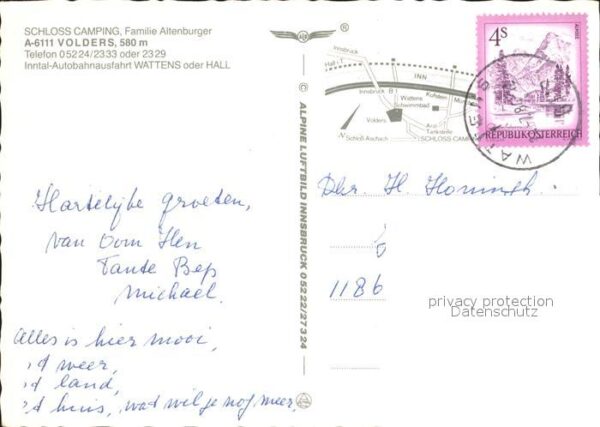 SCHLOSS CAMPING, Familie Altenburger
A-6111 VOLDERS, 580 m
Telefon 05224/2333 oder 2329
Inntal-Autobahnausfahrt WATTENS oder HALL
®
Innsbruck
Hall i. T.
INN
Innsbruck
B 1
Wattens
Schwimmbad
Kufstein
Volders
Aral
Tankstelle
Schloß Aschach
SCHLOSS CAMP
4S
REPUBLIK ÖSTERREICH
WATTENS
© ALPINE LUFTBILD INNSBRUCK 05222/27324
Hartelijke groeten,
van Oom Hen
Tante Bep
Michael.
Alles is hier mooi,
't weer,
't land,
't huis, wat wil je nog meer,
Dhr. H.
6
1186
privacy protection
Datenschutz